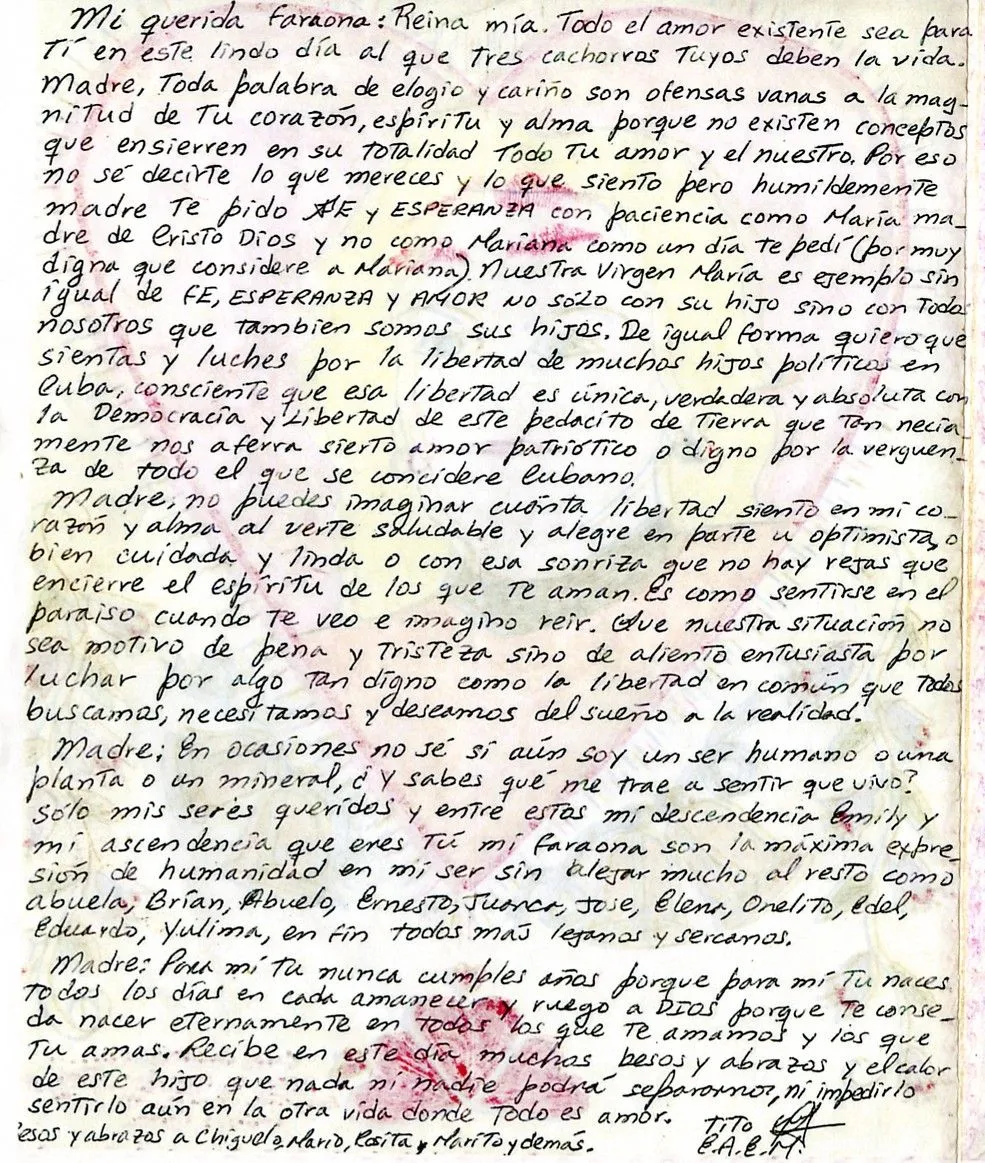 Mi querida faraona: Reina mía. Todo el amor existente sea para
Tí en este lindo día al que tres cachorros Tuyos deben la vida.
Madre, Toda palabra de elogio y cariño son ofensas vanas a la mag-
nitud de Tu corazón, espíritu y alma porque no existen conceptos
que ensierren en su totalidad Todo Tu amor y el nuestro. Por eso
no sé decirte lo que mereces y lo que siento pero humildemente
madre Te pido FE y ESPERANZA con paciencia como María ma-
dre de Cristo Dios y no como Mariana como un día te pedí (por muy
digna que considere a Mariana). Nuestra Virgen María es ejemplo sin
igual de FE, ESPERANZA y AMOR no sólo con su hijo sino con Todos
nosotros que tambien somos sus hijos. De igual forma quiero que
sientas y luches por la libertad de muchos hijos políticos en
Cuba, consciente que esa libertad es única, verdadera y absoluta con
la Democracía y Libertad de este pedacito de Tierra que Tan necia-
mente nos aferra sierto amor patriótico o digno por la verguen-
za de todo el que se concidere Cubano.
Madre, no puedes imaginar cuánta libertad siento en mi co-
razón y alma al verte saludable y alegre en parte u optimista, o
bien cuidada y linda o con esa sonriza que no hay rejas que
encierre el espíritu de los que Te aman. Es como sentirse en el
paraiso cuando te veo e imagino reir. Que nuestra situación no
sea motivo de pena y Tristeza sino de aliento entusiasta por
luchar por algo Tan digno como la libertad en común que Todos
buscamos, necesitamos y deseamos del sueño a la realidad.
Madre; En ocasiones no sé si aún soy un ser humano o una
planta o un mineral, ¿Y sabes qué me trae a sentir que vivo?
Sólo mis seres queridos y entre estos mi descendencia Emily y
mi ascendencia que eres Tú mi faraona son la máxima expre-
sión de humanidad en mi ser sin alejar mucho al resto como
abuela, Brían, Abuelo, Ernesto, Juanca, Jose, Elena, Onelito, Edel,
Eduardo, Yulima, en fin todos más lejanos y sercanos.
Madre: Para mí tu nunca cumples años porque para mí Tu naces
todos los días en cada amanecer y ruego a DIOS porque Te conse-
da nacer eternamente en todos los que Te amamos y los que
Tu amas. Recibe en este día muchos besos y abrazos y el calor
de este hijo que nada ni nadie podrá separarnos, ni impedirlo
sentirlo aún en la otra vida donde Todo es amor. TiTo
esos y abrazos a Chiguelo, Mario, Rosita, Marito y demás. E.A.E.M.